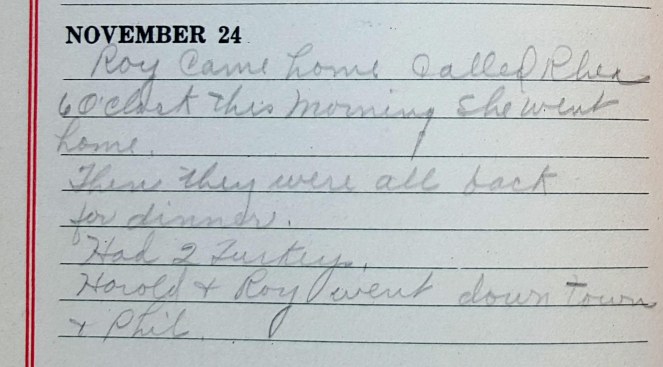 NOVEMBER 24
Roy Came home Called Rhea
6 O'clock this Morning She went
home.
Then they were all back
for dinner.
Had 2 Turkeys.
Harold + Roy went down town
+ Phil.